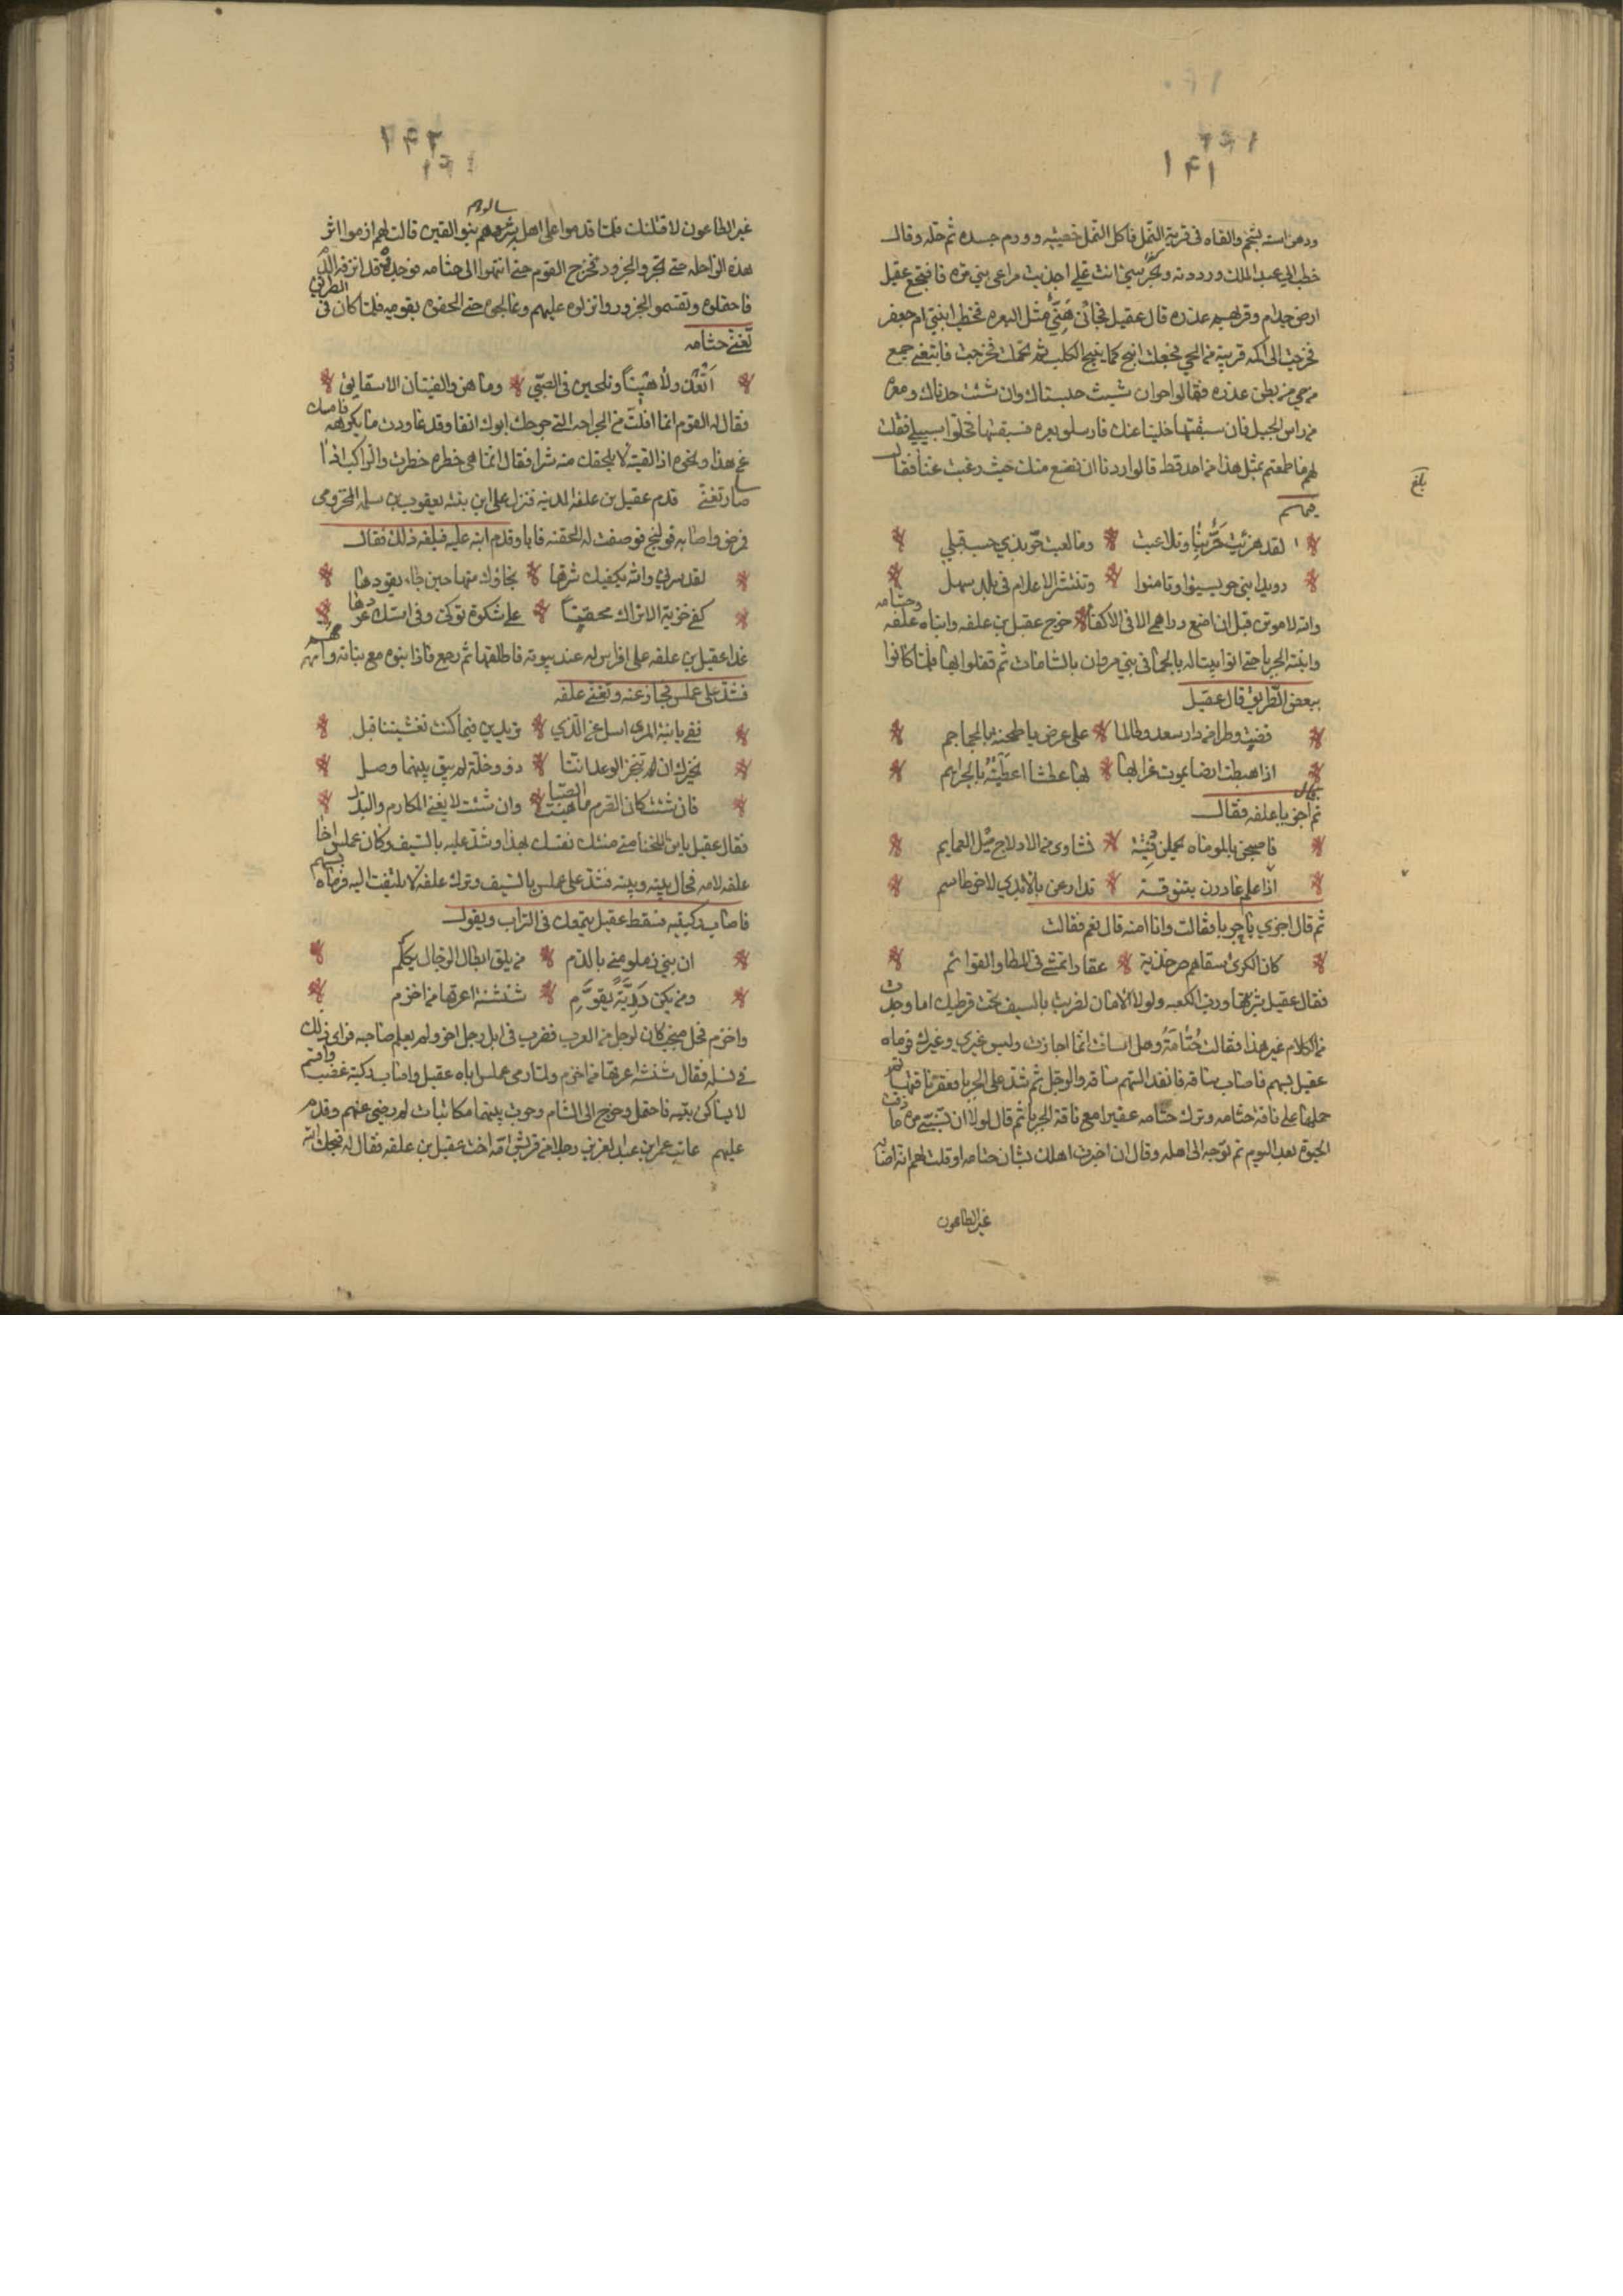 ١٤١
ودهن استه بشحم والقاه فى قرية النمل فاكل النمل خصييه وورم جسده ثم حله وقال
خطب الي عبد الملك ورددته وتجترئ انت علي اجذبت مراعى بني مره فانتجع عقيل
ارض جذام وقربهم عذره قال عقيل فجائى هني مثل البعره فخطب ابنتي ام جعفر
فخرجت الى اكمه قريبة من الحي فجعلت انبح كما ينبح الكلب ثم تحملت فخرجت فاتبعني جمع
من حي من بطن عذره فقالوا اختر ان شئت حبسناك وان شئت حدرناك وبعره
من راس الجبل فان سبقتها خلينا عنك فارسلوا بعره فسبقتها فخلوا سبيلي فقلت
لهم ما طمعتم بمثل هذا من احد قط قالوا اردنا ان نضع منك حيث رغبت عنا فقال
فيهم
لقد هزئت حن بنا وتلاعبت وما لعبت حن بذي حسب قبلي
رويدا بني حن يسيحوا وتامنوا وتنتشر الاعلام فى بلد سهل
والله لاموتن قبل ان اضع دراهمى الا فى الاكفا خرج عقيل بن علفه وابناه علفه وجثامه
وابنته الجربا حتى اتوا بيتا له بالحما فى بني مروان بالشامات ثم قفلوا بها فلما كانوا
ببعض الطريق قال عقيل
قضيت وطرا من دار سعد وطالما على عرض ناطحنه بالجماجم
اذا هبطت ارضا يموت غرابها بها عطشا اعطينه بالخزايم
ثم قال اجز يا علفه فقال
فاصبحن بالموماه يحملن فتية نشاوى من الادلاج ميل العمايم
اذا علم غادرن بتنوفة تدارعن بالايدي لاخر طاسم
ثم قال اجزي يا جربا فقالت وانا امنه قال نعم فقالت
كان الكرى سقاهم صرخدية عقارا تمشى فى المطا والقوائم
فقال عقيل شربتها ورب الكعبه ولولا الامان لضربت بالسيف تحت قرطيك اما وجدت
من الكلام غير هذا فقالت جثامة وهل اسات انما اجازت وليس غيري وغيرك فرماه
عقيل بسهم فاصاب ساقه فانفذ السهم ساقه والرحل ثم شد على الجربا فعقر ناقتها ثم
حملها على ناقة جثامه وترك جثامه عقيرا مع ناقة الجربا ثم قال لولا ان تسبني بنو مره ما ذقت
الحيوة بعد اليوم ثم توجه الى اهله وقال ان اخبرت اهلك بشان جثامه او قلت لهم انه اصابه
غير الطاعون
بلغ
١٤٢
غير الطاعون لاقتلنك فلما قدموا على اهل ابير وهم بنو القين
هذه الراحله حتى تجروا الجزور فخرج القوم حتى انتهوا الى جثامه فوجدوه قد انزفه الدم
فاحتملوه وتقسموا الجزور وانزلوه عليهم وعالجوه حتى الحقوه بقومه فلما كان فى الطريق
تغنى جثامه
ايعذر لاهينا ويلحين فى الصبى وما هن والفتيان الا شقايق
فقال له القوم انما افلت من الجراحه التي جرحك ابوك انفا وقد عاودت ما يكرهه فامسك
عن هذا ونحوه اذا لقيته لا يلحقك منه شر فقال انما هى خطره خطرت والراكب اذا
سار تغنى قدم عقيل بن علفه المدينه فنزل على ابن بنته يعقوب بن سلمه المخزومى
فمرض واصابه قولنج فوصفت له الحقنه فابا وقدم ابنه عليه فبلغه ذلك فقال
لقد سرني والله يكفيك شرها نجاؤك منها حين جاء يقودها
كفى خزية الا تزال محقبا على شكوة توكى وفى استك عودها
غدا عقيل بن علفه على افراس له عند بيوته فاطلقها ثم رجع فاذا بنوه مع بناته وامهم
فشد على عملس فحاز عنه وتغنى علفه
قفي يا ابنة المرى اسل عن الذي تريدين فيما كنت تمنيتنا قبل
نخبرك ان لم تنجز الوعد اننا ذوو خلة لم يبق بينهما وصل
فان شئت كان الصرم ما هبت الصبا وان شئت لا يفنى المكارم والبذل
فقال عقيل يابن اللخنا متى منتك نفسك بهذا وشد عليه بالسيف وكان عملس اخا
علفه لامه فحال بينه وبينه فشد على عملس بالسيف وترك علفه لا يلتفت اليه فرماه بسهم
فاصاب ركبتيه فسقط عقيل يتمعك فى التراب ويقول
ان بني زملوني بالدم من يلق ابطال الرجال يكلم
ومن يكن درئه يقوم شنشنة اعرفها من اخزم
واخزم فحل منجب كان لرجل من العرب فضرب فى ابل رجل اخر ولم يعلم صاحبه فراى ذلك
فى نسله فقال شنشنة اعرفها من اخزم ولما رمى عملس اباه عقيل واصاب ركبته غضب واقسم
لا يساكن بنيه فاحتمل وخرج الى الشام وجرت بينهما مكاتبات لم يرضى عنهم وقدم
عليهم عاتب عمر بن عبد العزيز رجلا من قريش امه اخت عقيل بن علفه فقال له قبحك الله